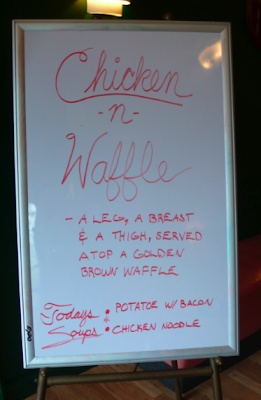 Chicken
-n-
Waffle
- A LEG, A BREAST
& A THIGH, SERVED
ATOP A GOLDEN
BROWN WAFFLE
Todays Soups: • POTATOE W/ BACON
• CHICKEN NOODLE